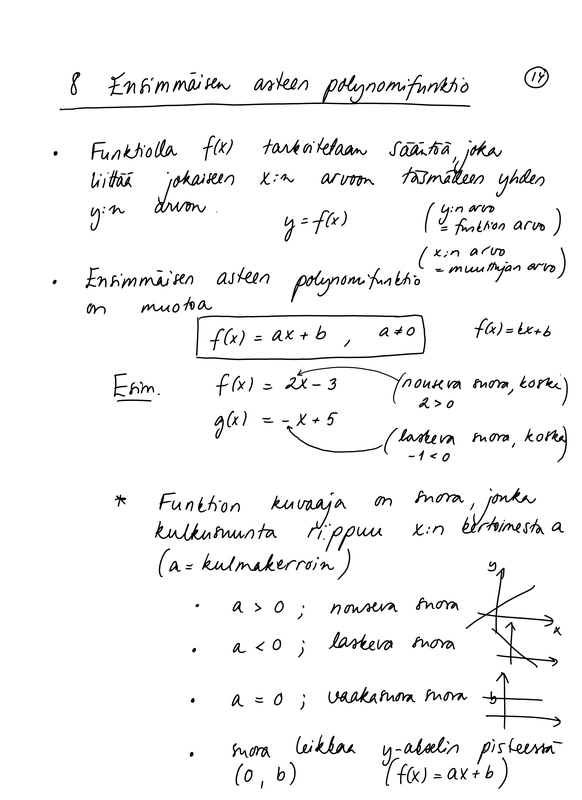 8 Ensimmäisen asteen polynomifunktio
14
• Funktiolla f(x) tarkoitetaan sääntöä, joka
liittää jokaiseen x:n arvoon täsmälleen yhden
y:n arvon.
y = f(x)
(y:n arvo
= funktion arvo)
(x:n arvo
= muuttujan arvo)
• Ensimmäisen asteen polynomifunktio
on muotoa
f(x) = ax + b , a ≠ 0
f(x) = kx + b
Esim.
f(x) = 2x - 3
(nouseva suora, koska)
2 > 0
g(x) = -x + 5
(laskeva suora, koska)
-1 < 0
* Funktion kuvaaja on suora, jonka
kulkusuunta riippuu x:n kertoimesta a
(a = kulmakerroin)
• a > 0 ; nouseva suora
y
x
• a < 0 ; laskeva suora
• a = 0 ; vaakasuora suora
b
• suora leikkaa y-akselin pisteessä
(0, b) (f(x) = ax + b)